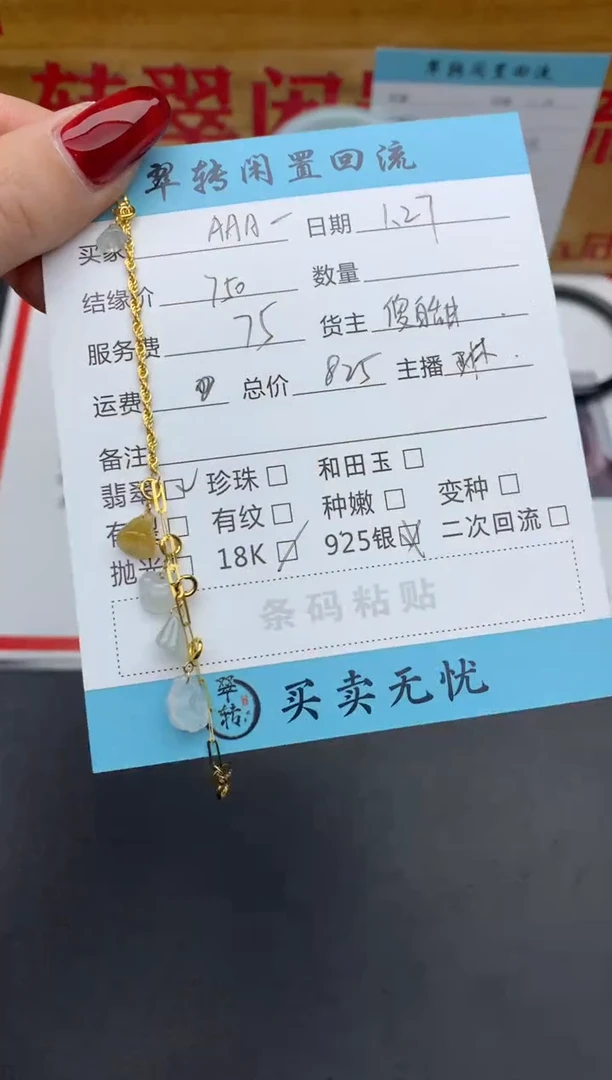 转翠闲
翠转闲置回流
翠转闲置回流
买家 AAA 日期 1.27
结缘价 750 数量
服务费 75 货主
运费 0 总价 825 主播 琳
备注
翡翠 珍珠 和田玉
有 有纹 种嫩 变种
抛光 18K 925银 二次回流
条码粘贴
翠转
买卖无忧